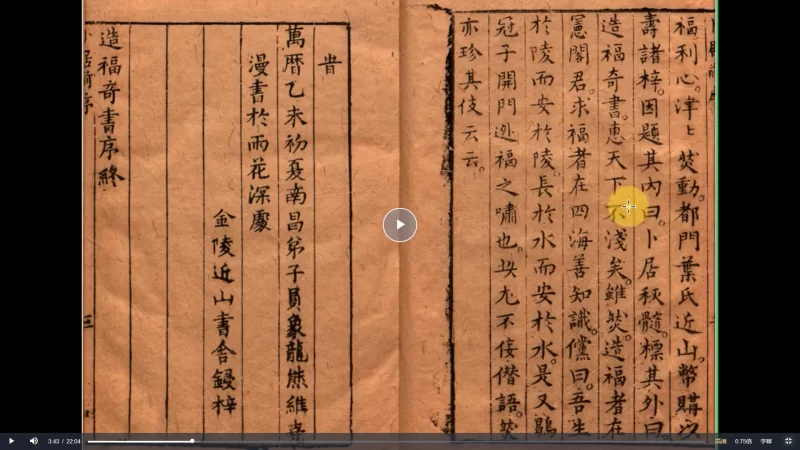 福利心津〻焚動都門葉氏近山幣購以
壽諸梓因題其內曰卜居秘髓標其外曰
造福奇書惠天下不淺矣雖焚造福者在
憲閣君求福者在四海善知識儻曰吾生
於陵而安於陵長於水而安於水是又鶡
冠子開門逊福之嘯也尤不侫僭語
亦珍其伎云云
旹
萬曆乙未初夏南昌弟子員象龍熊維
漫書於雨花深處
金陵近山書舍鋟梓
造福奇書序終
三
3:43 / 22:04
高清 0.75倍 字幕